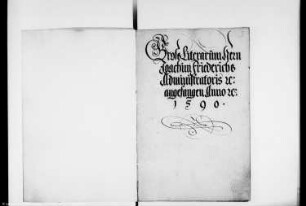 Prots Literarum Hern
Joachim Friederichs
Administratoris ꝛc:
angefangen Anno ꝛc:
1590.